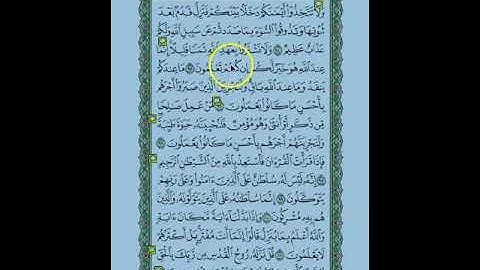 وَلَا تَتَّخِذُوٓاْ أَيۡمَٰنَكُمۡ دَخَلَۢا بَيۡنَكُمۡ فَتَزِلَّ قَدَمُۢ بَعۡدَ
ثُبُوتِهَا وَتَذُوقُواْ ٱلسُّوٓءَ بِمَا صَدَدتُّمۡ عَن سَبِيلِ ٱللَّهِ وَلَكُمۡ
عَذَابٌ عَظِيمٞ ٩٤ وَلَا تَشۡتَرُواْ بِعَهۡدِ ٱللَّهِ ثَمَنٗا قَلِيلًاۚ إِنَّمَا
عِندَ ٱللَّهِ هُوَ خَيۡرٞ لَّكُمۡ إِن كُنتُمۡ تَعۡلَمُونَ ٩٥ مَا عِندَكُمۡ
يَنفَدُ وَمَا عِندَ ٱللَّهِ بَاقٖۗ وَلَنَجۡزِيَنَّ ٱلَّذِينَ صَبَرُوٓاْ أَجۡرَهُم
بِأَحۡسَنِ مَا كَانُواْ يَعۡمَلُونَ ٩٦ مَنۡ عَمِلَ صَٰلِحٗا
مِّن ذَكَرٍ أَوۡ أُنثَىٰ وَهُوَ مُؤۡمِنٞ فَلَنُحۡيِيَنَّهُۥ حَيَوٰةٗ طَيِّبَةٗۖ
وَلَنَجۡزِيَنَّهُمۡ أَجۡرَهُم بِأَحۡسَنِ مَا كَانُواْ يَعۡمَلُونَ ٩٧
فَإِذَا قَرَأۡتَ ٱلۡقُرۡءَانَ فَٱسۡتَعِذۡ بِٱللَّهِ مِنَ ٱلشَّيۡطَٰنِ ٱلرَّجِيمِ
٩٨ إِنَّهُۥ لَيۡسَ لَهُۥ سُلۡطَٰنٌ عَلَى ٱلَّذِينَ ءَامَنُواْ وَعَلَىٰ رَبِّهِمۡ
يَتَوَكَّلُونَ ٩٩ إِنَّمَا سُلۡطَٰنُهُۥ عَلَى ٱلَّذِينَ يَتَوَلَّوۡنَهُۥ وَٱلَّذِينَ
هُم بِهِۦ مُشۡرِكُونَ ١٠٠ وَإِذَا بَدَّلۡنَآ ءَايَةٗ مَّكَانَ ءَايَةٖ
وَٱللَّهُ أَعۡلَمُ بِمَا يُنَزِّلُ قَالُوٓاْ إِنَّمَآ أَنتَ مُفۡتَرِۭۚ بَلۡ أَكۡثَرُهُمۡ
لَا يَعۡلَمُونَ ١٠١ قُلۡ نَزَّلَهُۥ رُوحُ ٱلۡقُدُسِ مِن رَّبِّكَ بِٱلۡحَقِّ